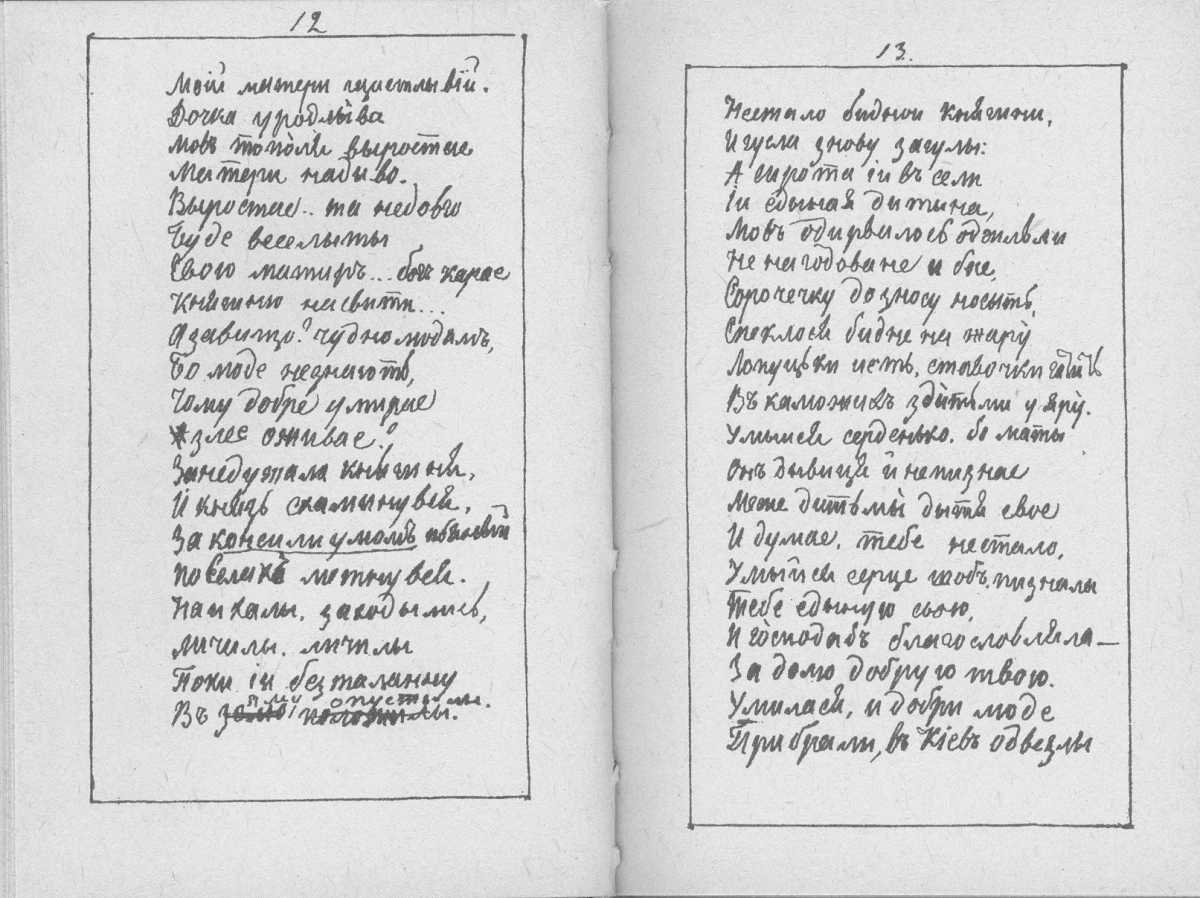 12
Моій матери щастлывій.
Дочка уродлыва
Мовъ тополя выростае
Матери на дыво.
Выростае.. та недовго
Буде веселыты
Свою матиръ... богъ карае
Княгиню на свити...
А завищо? чудно людямъ,
Бо люде незнаютъ,
Чому добре умирае
злее оживае?
Занедужала княгиня,
И князь схаменувся,
За консили умомъ
По селахъ метнувся.
Наихалы, заходылись,
Личилы, личилы
Поки іи безталанну
Въ опустылы.
13.
Нестало бидной княгини,
И гусла знову загулы:
А сирота іи въ сели
Іи едыная дитына,
Мовъ одирвилось одъ
Не нагодоване и бие,
Сорочечку до зносу носыть,
Спеклося бидне на жару
Лопуцьки исть, ставочки
Въ каложахъ здитми у яру.
Умыйся серденько, бо маты
Онъ дывиця и непизнае
Меже дитьмы дытя свое
И думае, тебе нестало,
Умыйся серце щобъ пизналы
Тебе едыную свою,
И господабъ благословляла—
За долю добрую твою.
Умилася, и добри люде
Прибрали, въ Кіевъ одвезлы